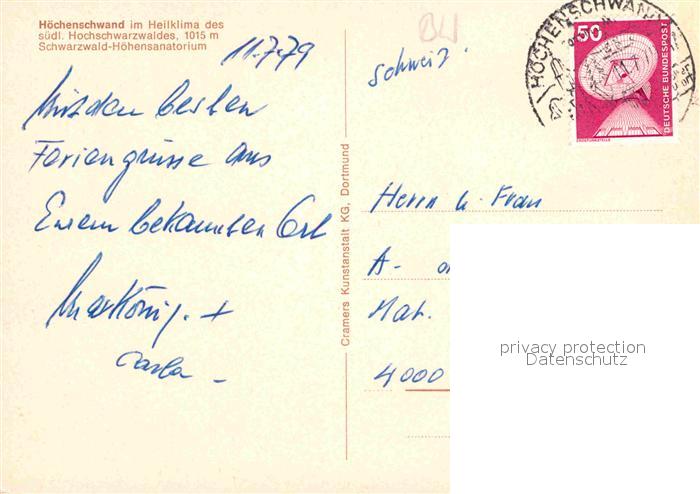 Höchenschwand im Heilklima des
südl. Hochschwarzwaldes, 1015 m
Schwarzwald-Höhensanatorium
11.7.79
Mit den besten
Feriengrüsse aus
Eurem bekannten Ort
Max König. +
Carla -
Cramers Kunstanstalt KG, Dortmund
BW
Schweiz
HÖCHENSCHWAND
50
DEUTSCHE BUNDESPOST
ERDFUNKSTELLE
Herrn u. Frau
A-
Hat.
4000
privacy protection
Datenschutz